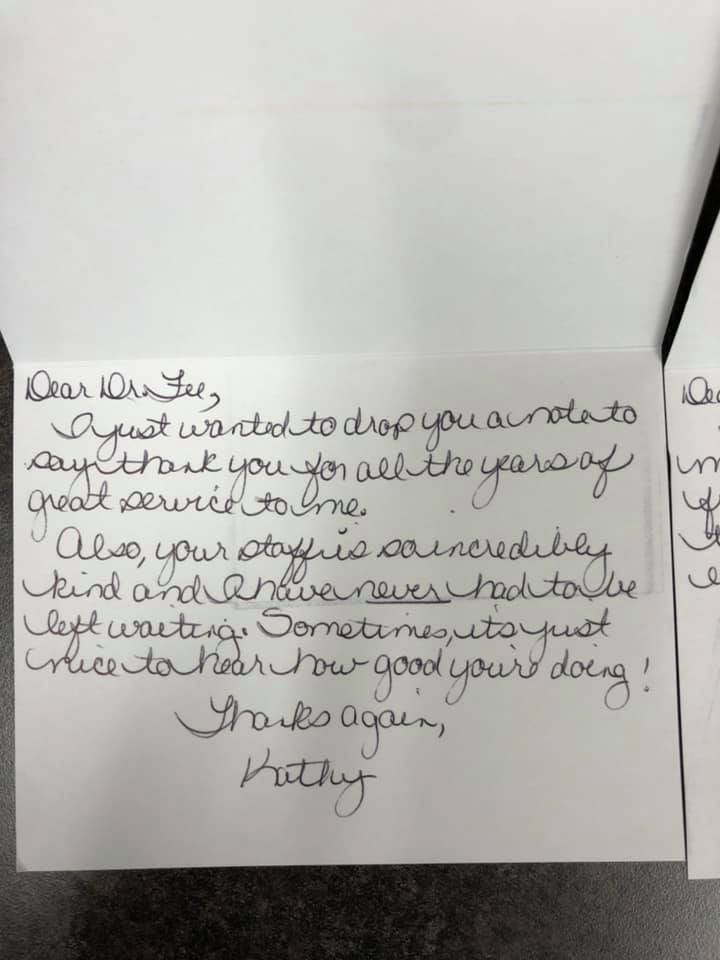 Dear Dr. Fee,
I just wanted to drop you a note to
say thank you for all the years of
great service to me.
Also, your staff is so incredibly
kind and I have never had to be
left waiting. Sometimes, it's just
nice to hear how good you're doing!
Thanks again,
Kathy
Dea